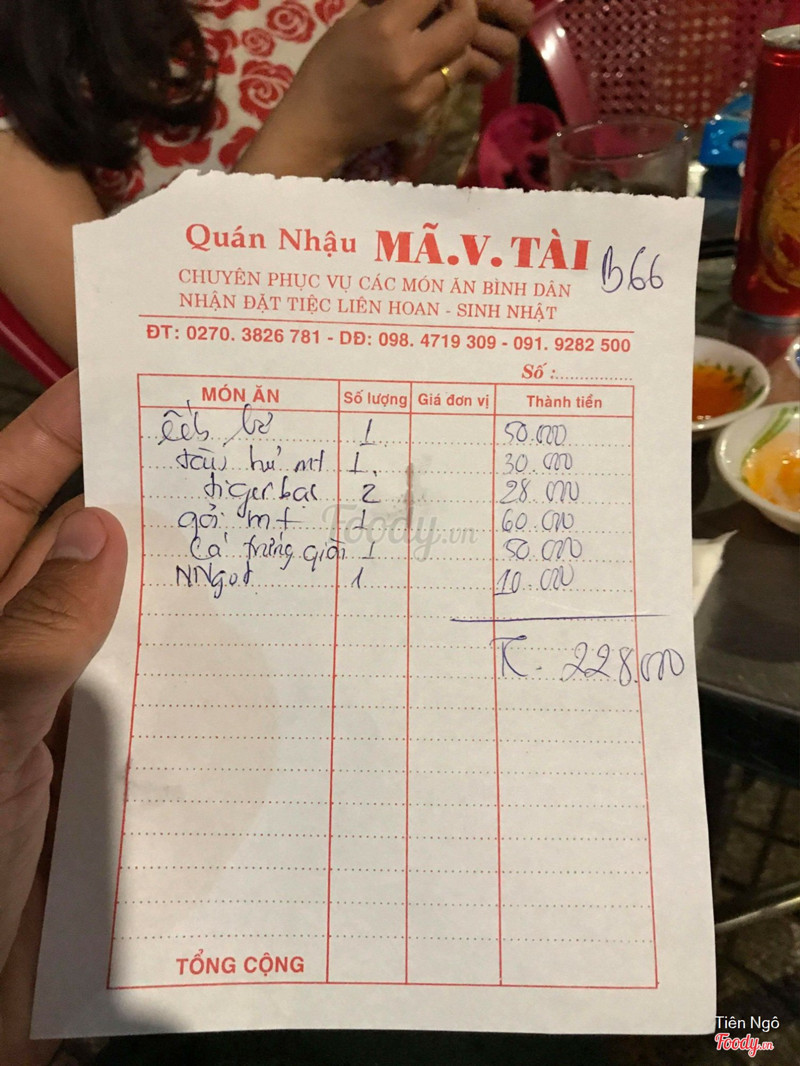 Quán Nhậu MÃ.V.TÀI
B66
CHUYÊN PHỤC VỤ CÁC MÓN ĂN BÌNH DÂN
NHẬN ĐẶT TIỆC LIÊN HOAN - SINH NHẬT
ĐT: 0270. 3826 781 - DĐ: 098. 4719 309 - 091. 9282 500
Số :
MÓN ĂN Số lượng Giá đơn vị Thành tiền
Ếch bơ 1 50.000
tàu hủ mt 1. 30.000
tiger bạc 2 28.000
gỏi mt 1 60.000
Cá trứng giòn 1 50.000
NNgọt 1 10.000
228.000
TỔNG CỘNG
Foody.vn
Tiên Ngô
Foody.vn